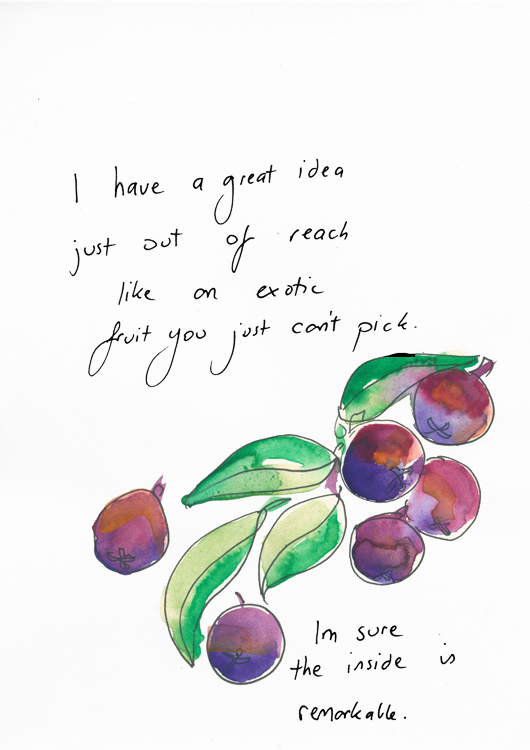 I have a great idea
just out of reach
like an exotic
fruit you just can't pick.
Im sure
the inside is
remarkable.